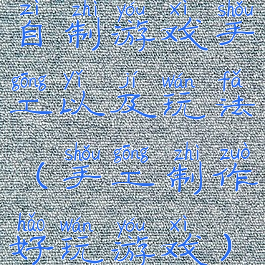 zì zhì yóu xì shǒu
自制游戏手
gōng yǐ jí wán fǎ
工以及玩法
shǒu gōng zhì zuò
（手工制作
hǎo wán yóu xì
好玩游戏）